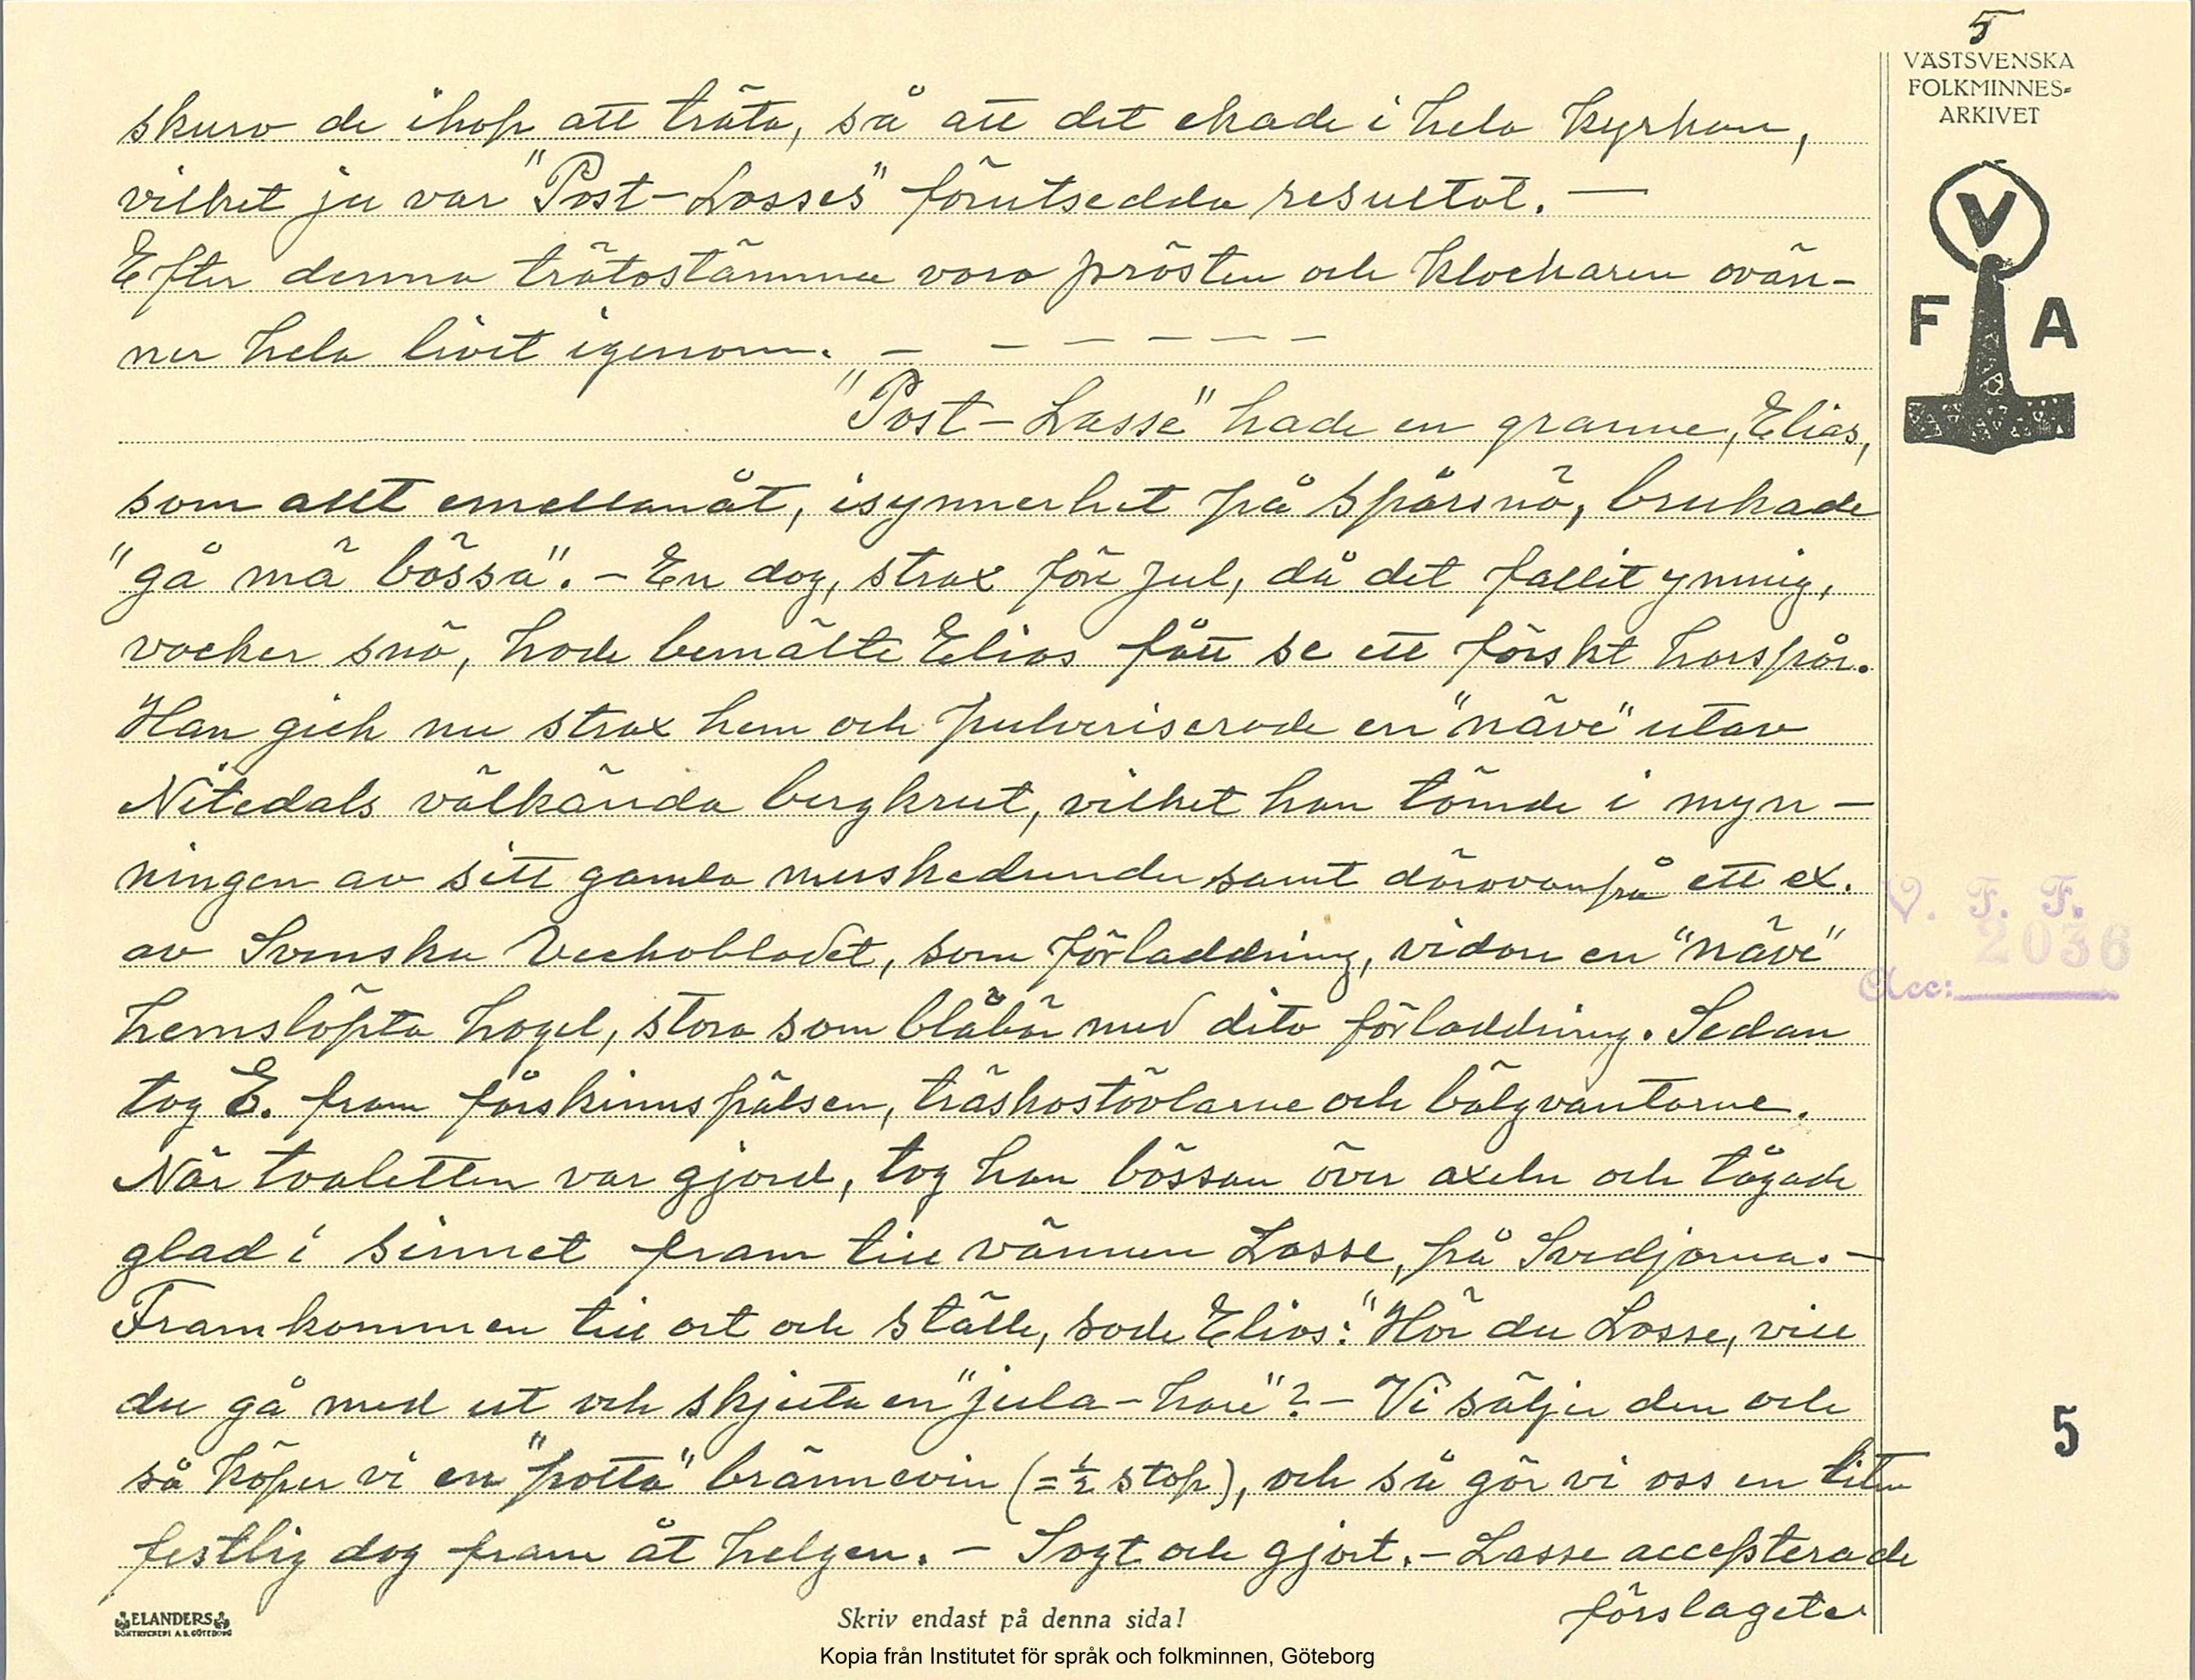 5
VÄSTSVENSKA
FOLKMINNES=
ARKIVET
V
F A
skuro de ihop att träta, så att det ekade i hela kyrkan,
vilket ju var "Post-Lasses" förutsedda resultat. —
Efter denna trätostämma voro prosten och klockaren ovän-
ner hela livet igenom. — — — — — —
"Post-Lasse" hade en granne, Elias,
som allt emellanåt, isynnerhet på spårsnö, brukade
"gå mä bössa". - En dag, strax före jul, då det fallit ymnig,
vacker snö, hade bemälte Elias fått se ett färskt harspår.
Han gick nu strax hem och pulveriserade en "näve" utav
Nitedals välkända bergkrut, vilket han tömde i myn-
ningen av sitt gamla muskedunder samt därovanpå ett ex.
av Svenska Veckobladet, som förladdning, vidare en "näve"
hemslöpta hagel, stora som blåbär med dito förladdning. Sedan
tog E. fram fårskinnspälsen, träskostövlarne och bälgvantarne.
När toaletten var gjord, tog han bössan över axeln och tågade
glad i sinnet fram till vännen Lasse, på Svedjorna. -
Framkommen till ort och ställe, sade Elias: "Hör du Lasse, vill
du gå med ut och skjuta en "jula-hare"? - Vi säljer den och
så köper vi en "potta" brännevin (= ½ stop), och så gör vi oss en liten
festlig dag fram åt helgen. - Sagt och gjort. - Lasse accepterade
förslaget
V. F. F.
2036
Acc:
5
ELANDERS
BOKTRYCKERI A.B. GÖTEBORG
Skriv endast på denna sida!
Kopia från Institutet för språk och folkminnen, Göteborg